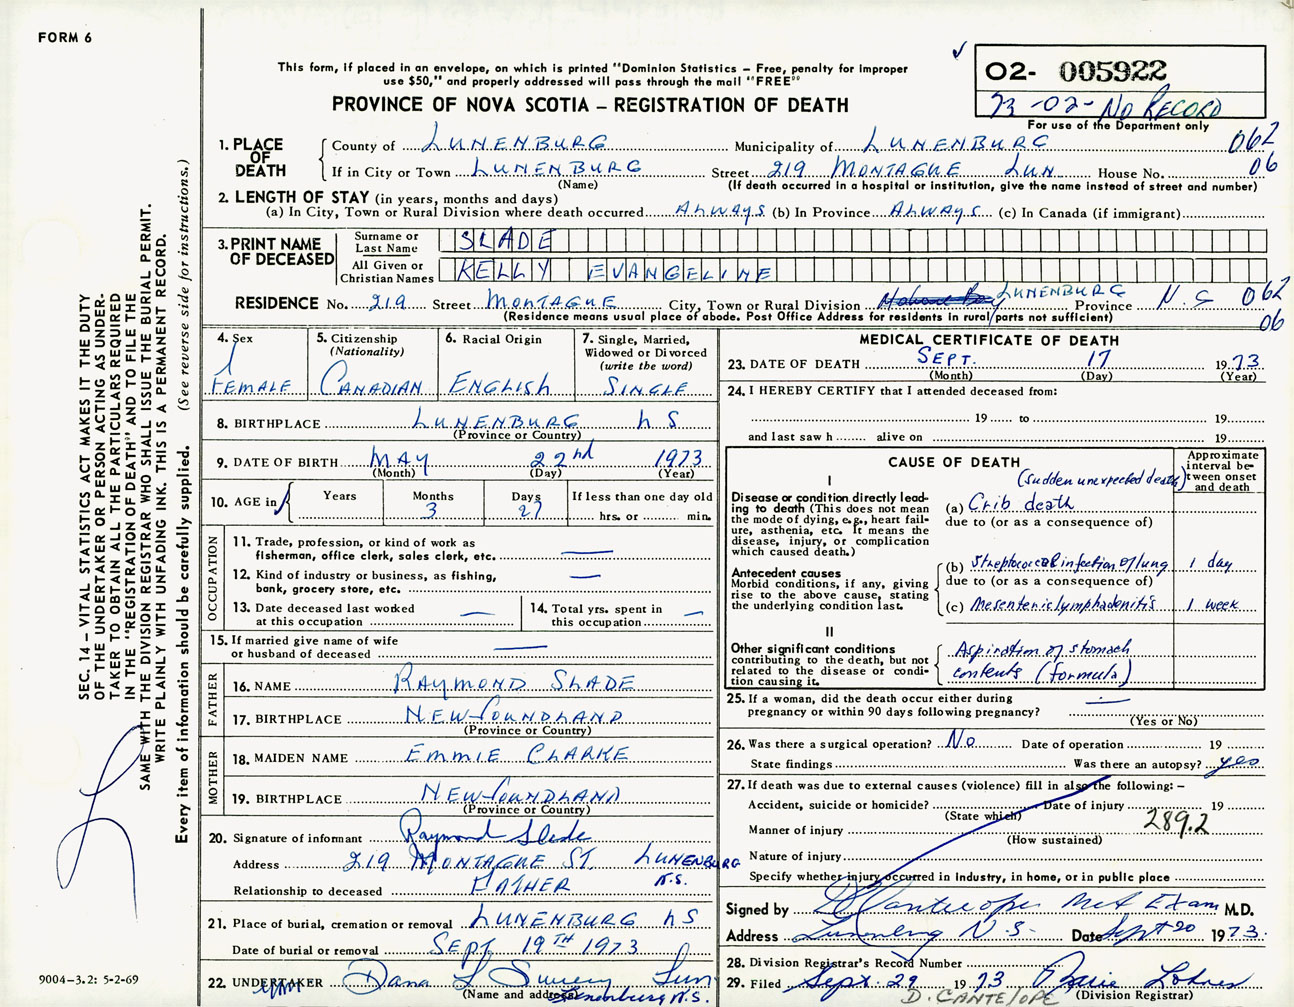 FORM 6
This form, if placed in an envelope, on which is printed "Dominion Statistics – Free, penalty for improper
use $50," and properly addressed will pass through the mail "FREE"
PROVINCE OF NOVA SCOTIA – REGISTRATION OF DEATH
02- 005922
73-02- No RECORD
For use of the Department only
1. PLACE OF DEATH
County of LUNENBURG Municipality of LUNENBURG 062
If in City or Town LUNENBURG Street 219 MONTAGUE LUN House No. 06
(Name) (If death occurred in a hospital or institution, give the name instead of street and number)
2. LENGTH OF STAY (in years, months and days)
(a) In City, Town or Rural Division where death occurred ALWAYS (b) In Province ALWAYS (c) In Canada (if immigrant)
3. PRINT NAME OF DECEASED
Surname or Last Name SLADE
All Given or Christian Names KELLY EVANGELINE
RESIDENCE No. 219 Street MONTAGUE City, Town or Rural Division LUNENBURG Province N.S 062
(Residence means usual place of abode. Post Office Address for residents in rural parts not sufficient) 06
4. Sex
FEMALE
5. Citizenship
(Nationality)
CANADIAN
6. Racial Origin
ENGLISH
7. Single, Married,
Widowed or Divorced
(write the word)
SINGLE
8. BIRTHPLACE LUNENBURG N S
(Province or Country)
9. DATE OF BIRTH MAY 22nd 1973
(Month) (Day) (Year)
10. AGE in
Years
Months 3
Days 27
If less than one day old
hrs. or min.
OCCUPATION
11. Trade, profession, or kind of work as
fisherman, office clerk, sales clerk, etc. —
12. Kind of industry or business, as fishing,
bank, grocery store, etc. —
13. Date deceased last worked
at this occupation —
14. Total yrs. spent in
this occupation —
15. If married give name of wife
or husband of deceased —
FATHER
16. NAME RAYMOND SLADE
17. BIRTHPLACE NEWFOUNDLAND
(Province or Country)
MOTHER
18. MAIDEN NAME EMMIE CLARKE
19. BIRTHPLACE NEWFOUNDLAND
(Province or Country)
20. Signature of informant Raymond Slade
Address 219 MONTAGUE ST. LUNENBURG
N.S.
Relationship to deceased FATHER
21. Place of burial, cremation or removal LUNENBURG N S
Date of burial or removal SEPT 19TH 1973
22. UNDERTAKER Dana L Sweeny Lun
(Name and address) Lunenburg N.S.
MEDICAL CERTIFICATE OF DEATH
23. DATE OF DEATH SEPT. 17 1973
(Month) (Day) (Year)
24. I HEREBY CERTIFY that I attended deceased from:
19 to 19
and last saw h alive on 19
CAUSE OF DEATH
Approximate
interval be-
tween onset
and death
I (Sudden unexpected death)
Disease or condition directly lead-
ing to death (This does not mean
the mode of dying, e.g., heart fail-
ure, asthenia, etc. It means the
disease, injury, or complication
which caused death.)
(a) Crib death
due to (or as a consequence of)
Antecedent causes
Morbid conditions, if any, giving
rise to the above cause, stating
the underlying condition last.
(b) Streptococcal infection of lung 1 day
due to (or as a consequence of)
(c) Mesenteric lymphadenitis 1 week
II
Other significant conditions
contributing to the death, but not
related to the disease or condi-
tion causing it.
Aspiration of stomach
contents (formula)
25. If a woman, did the death occur either during
pregnancy or within 90 days following pregnancy? —
(Yes or No)
26. Was there a surgical operation? No Date of operation 19
State findings Was there an autopsy? yes
27. If death was due to external causes (violence) fill in also the following: –
Accident, suicide or homicide? Date of injury 19
(State which)
289.2
Manner of injury
(How sustained)
Nature of injury
Specify whether injury occurred in industry, in home, or in public place
Signed by D Cantelope Med Exam M.D.
Address Lunenburg N.S. Date Sept 20 1973.
28. Division Registrar's Record Number
29. Filed Sept. 29 1973
D. CANTELOPE (Division Registrar)
SEC. 14 – VITAL STATISTICS ACT MAKES IT THE DUTY
OF THE UNDERTAKER OR PERSON ACTING AS UNDER-
TAKER TO OBTAIN ALL THE PARTICULARS REQUIRED
IN THE "REGISTRATION OF DEATH" AND TO FILE THE
SAME WITH THE DIVISION REGISTRAR WHO SHALL ISSUE THE BURIAL PERMIT.
WRITE PLAINLY WITH UNFADING INK. THIS IS A PERMANENT RECORD.
Every item of information should be carefully supplied. (See reverse side for instructions.)
9004-3.2: 5-2-69